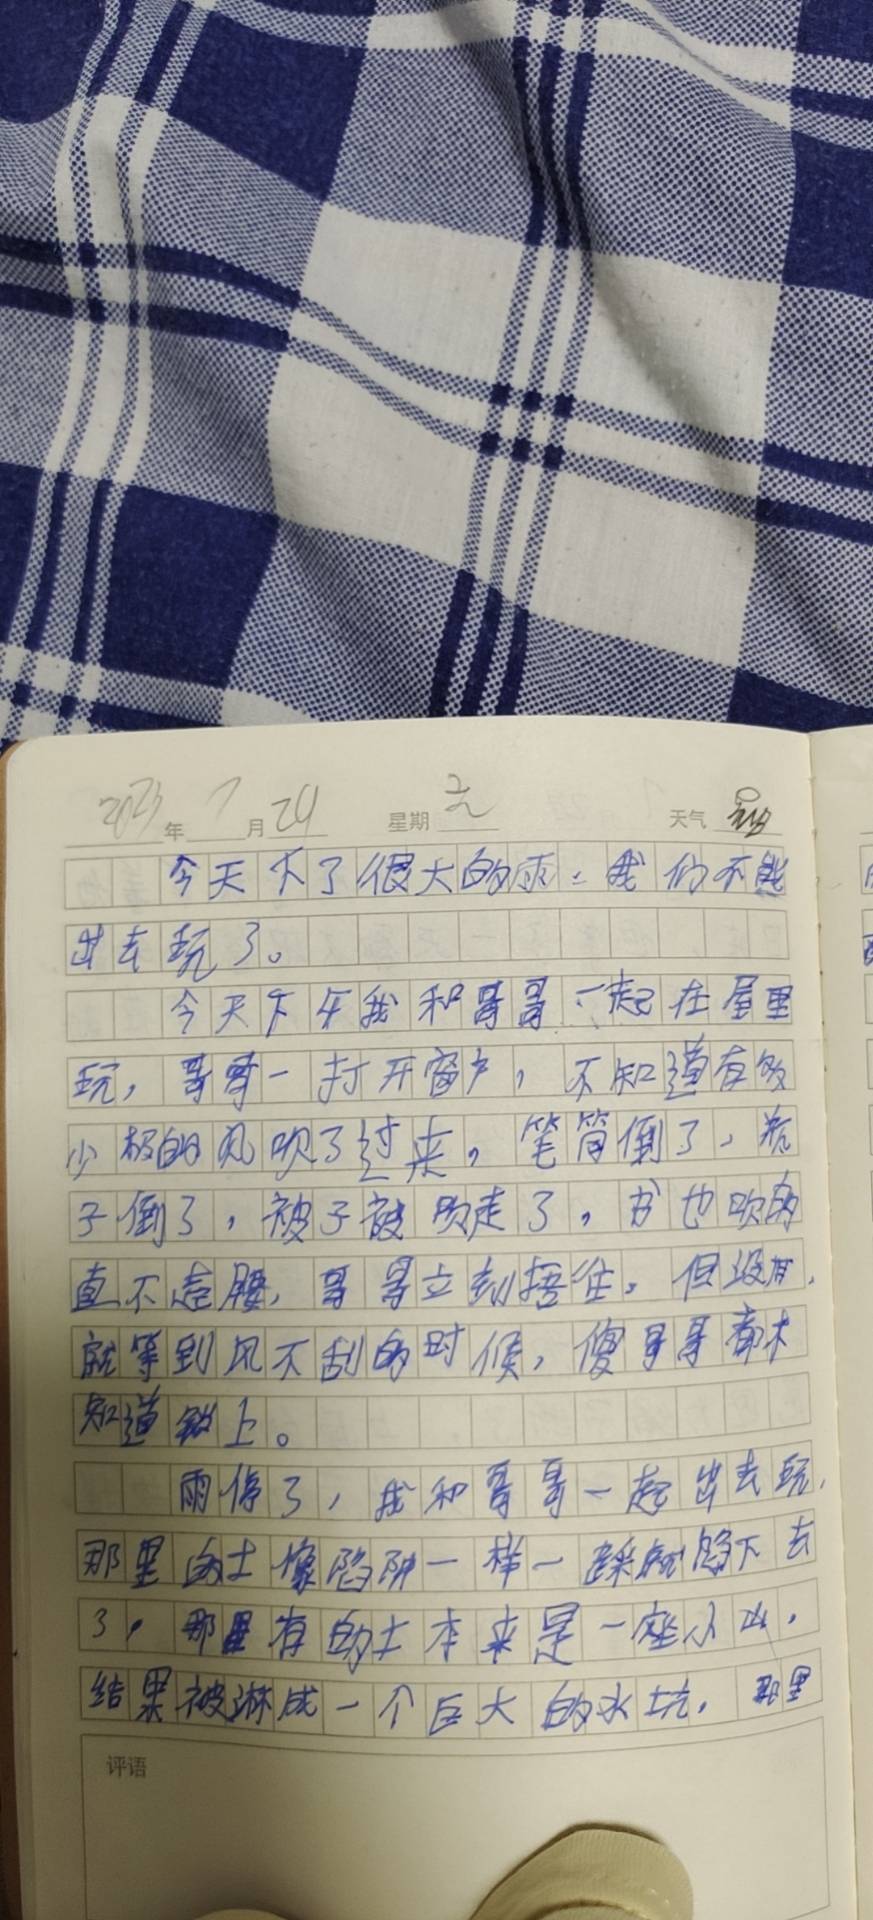 2023年7月24 星期 天气
今天下了很大的雨,我们不能
出去玩了。
今天下午我和哥哥一起在屋里
玩,哥哥一打开窗户,不知道有多
少极的风吹了过来,笔筒倒了,瓶
子倒了,被子被吹走了,书也吹的
直不起腰,哥哥立刻捂住。但没用,
就等到风不刮的时候,傻哥哥都木
知道锁上。
雨停了,我和哥哥一起出去玩,
那里的土像陷阱一样一踩就陷下去
了,那里有的土本来是一座小山,
结果被淋成一个巨大的水坑,那里
评语